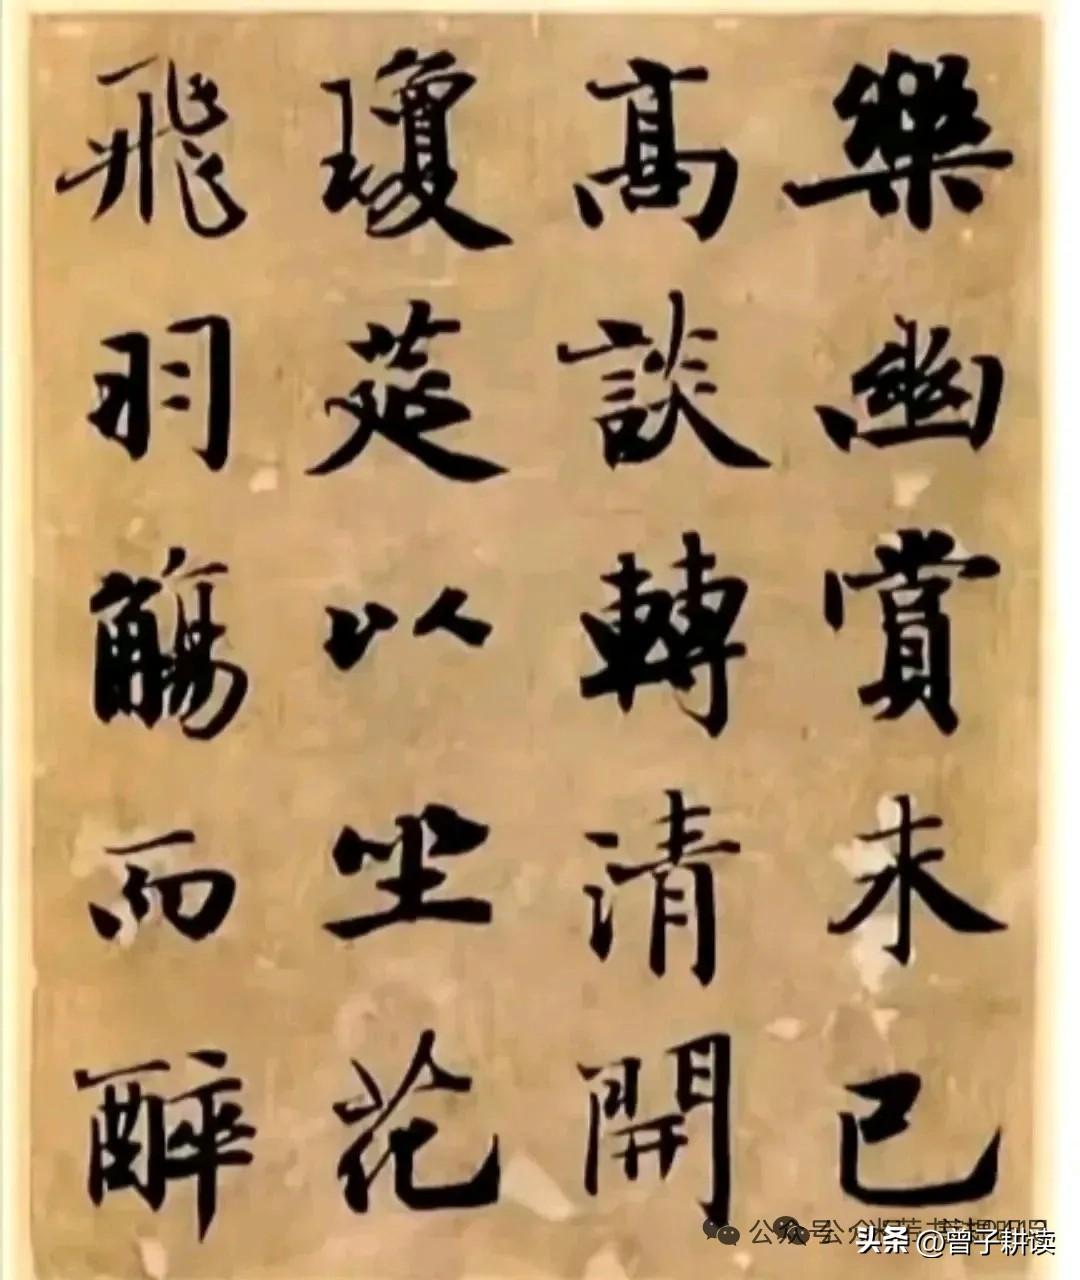 樂幽賞未已
高談轉清開
瓊莚以坐花
飛羽觴而醉
头条 @曾子耕读